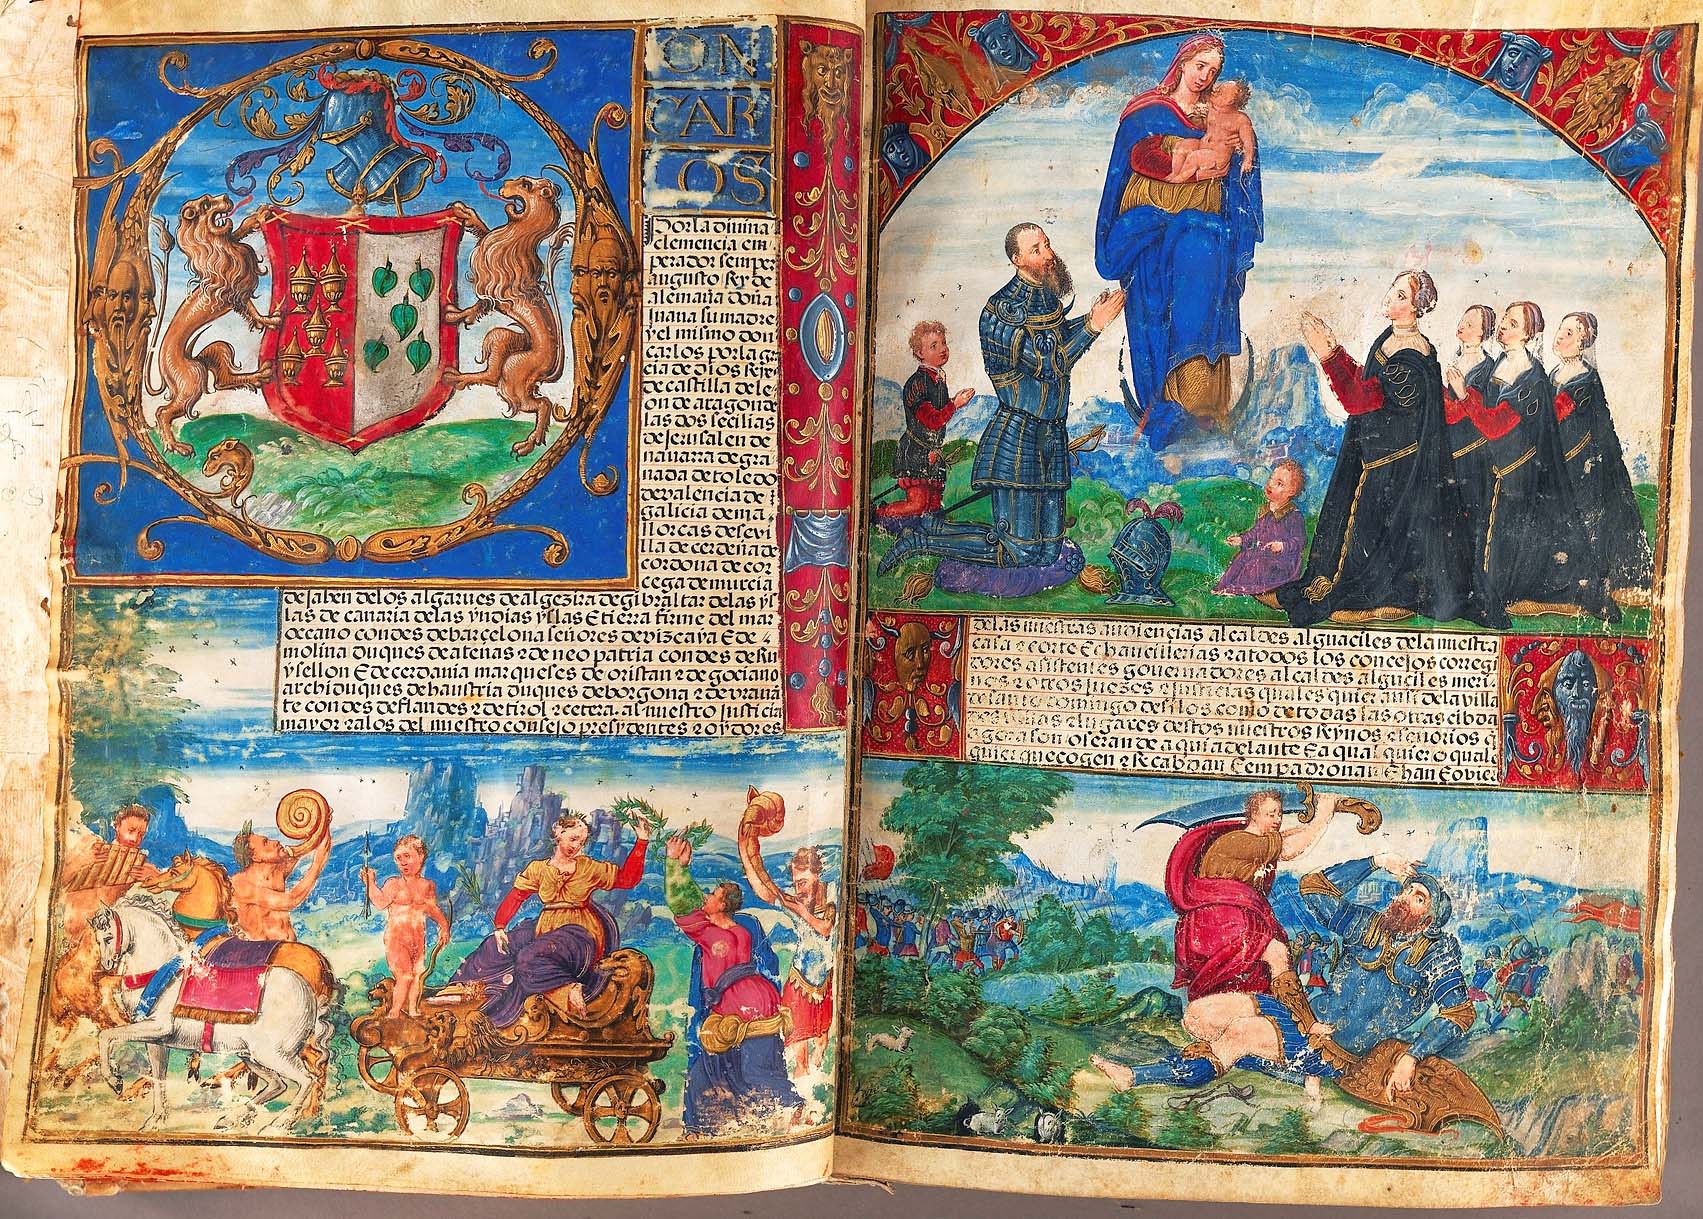 ON
CAR
OS
Por la divina
clemencia em
perador semper
augusto Rey de
alemaña doña
Juana su madre
y el mismo don
carlos por la gr̃a
cia de dios Reyes
de castilla de le
on de aragon de
las dos secilias
de Jerusalen de
navarra de gra
nada de toledo
de valencia de
galicia de ma
llorcas de sevi
lla de cerdeña de
cordova de cor
cega de murcia
de Jahen de los algarves de algezira de gibraltar de las ys
las de canaria de las yndias yslas E tierra firme del mar
oceano condes de barcelona señores de vizcaya E de
molina duques de atenas z de neopatria condes de Ru
ysellon E de cerdania marqueses de oristan z de gociano
archiduques de haustria duques de borgona z de bravan
te condes de flandes z de tirol zcetera. al nuestro Justicia
mayor z alos del nuestro consejo presydentes z oydores
delas nuestras audiencias alcaldes alguaciles dela nuestra
casa z corte E chancillerias z a todos los concejos corregi
dores asistentes governadores alcaldes alguciles meri
nos z otros juezes z justicias quales quier ansi dela villa
de santo domingo de silos como de todas las otras cibda
des villas z lugares destos nuestros Reynos z senorios q̃
agora son o seran de aqui adelante E a qual quier o quales
quier que cogen z Recabdan E enpadronan E han E ovier